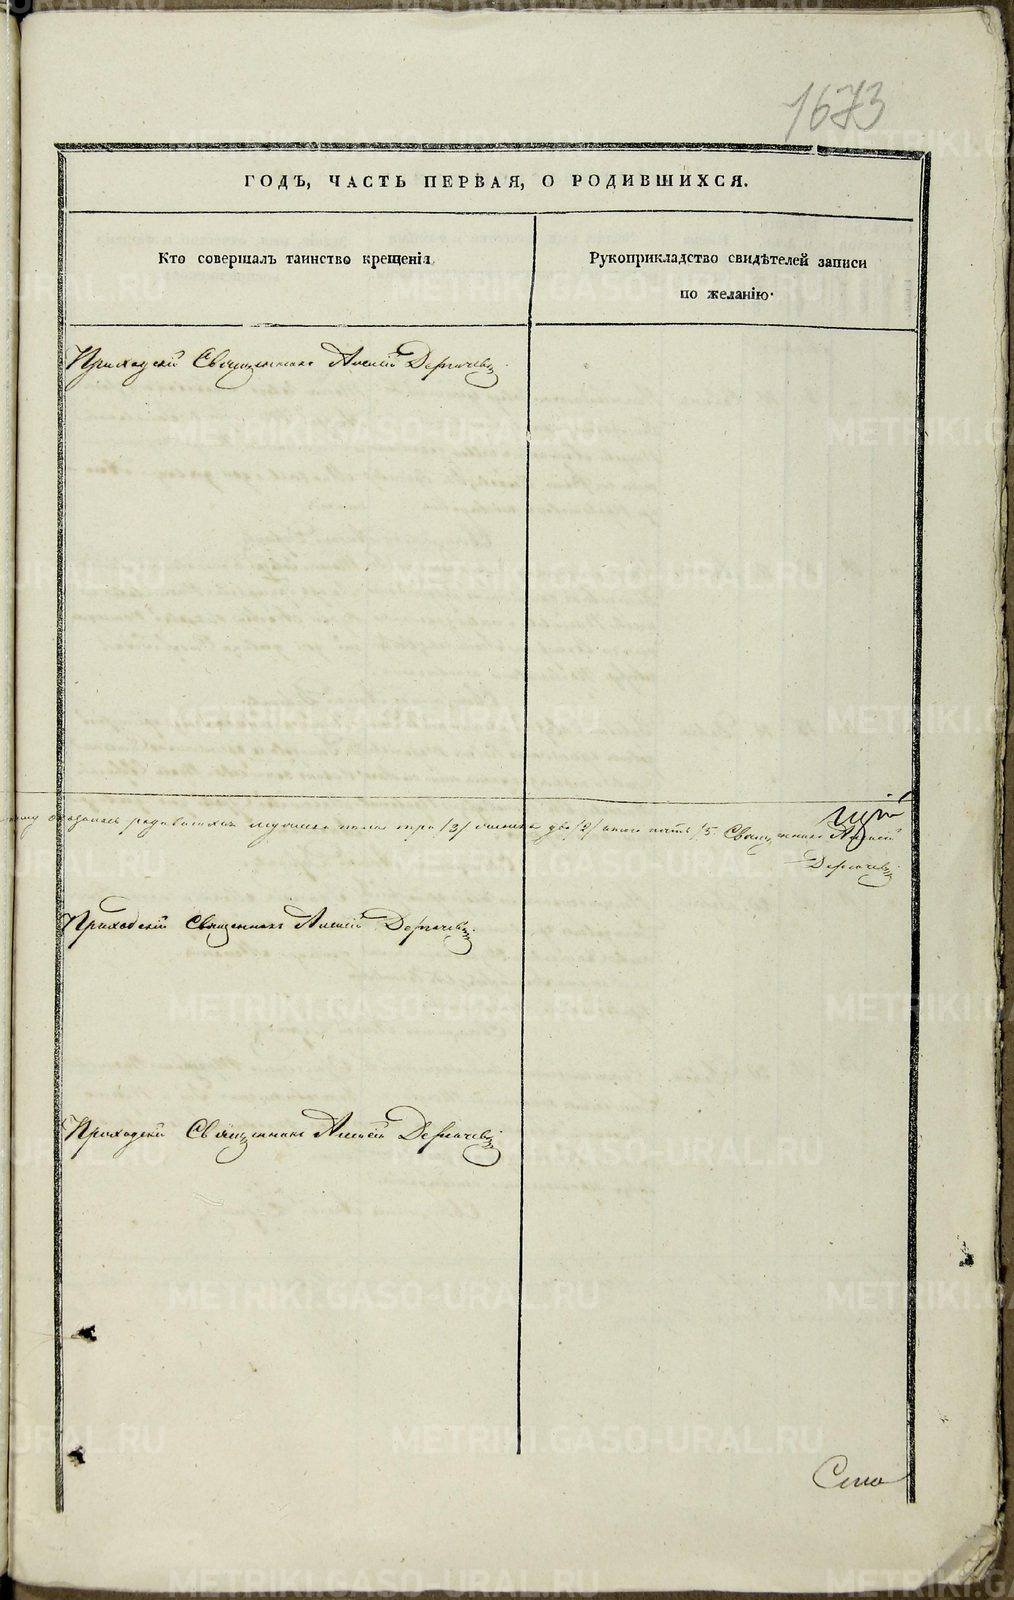 1673
ГОДЪ, ЧАСТЬ ПЕРВАЯ, О РОДИВШИХСЯ.
Кто совершалъ таинство крещенія
Рукоприкладство свидѣтелей записи
по желанію.
Приходскій Священникъ Алексій Дерпачевъ
оказалось родившихся мужеска пола три /3/ женска два /2/ итого пять /5. Священникъ Алексій
Дерпачевъ
Приходскій Священникъ Алексій Дерпачевъ
Приходскій Священникъ Алексій Дерпачевъ
METRIKI.GASO-URAL.RU